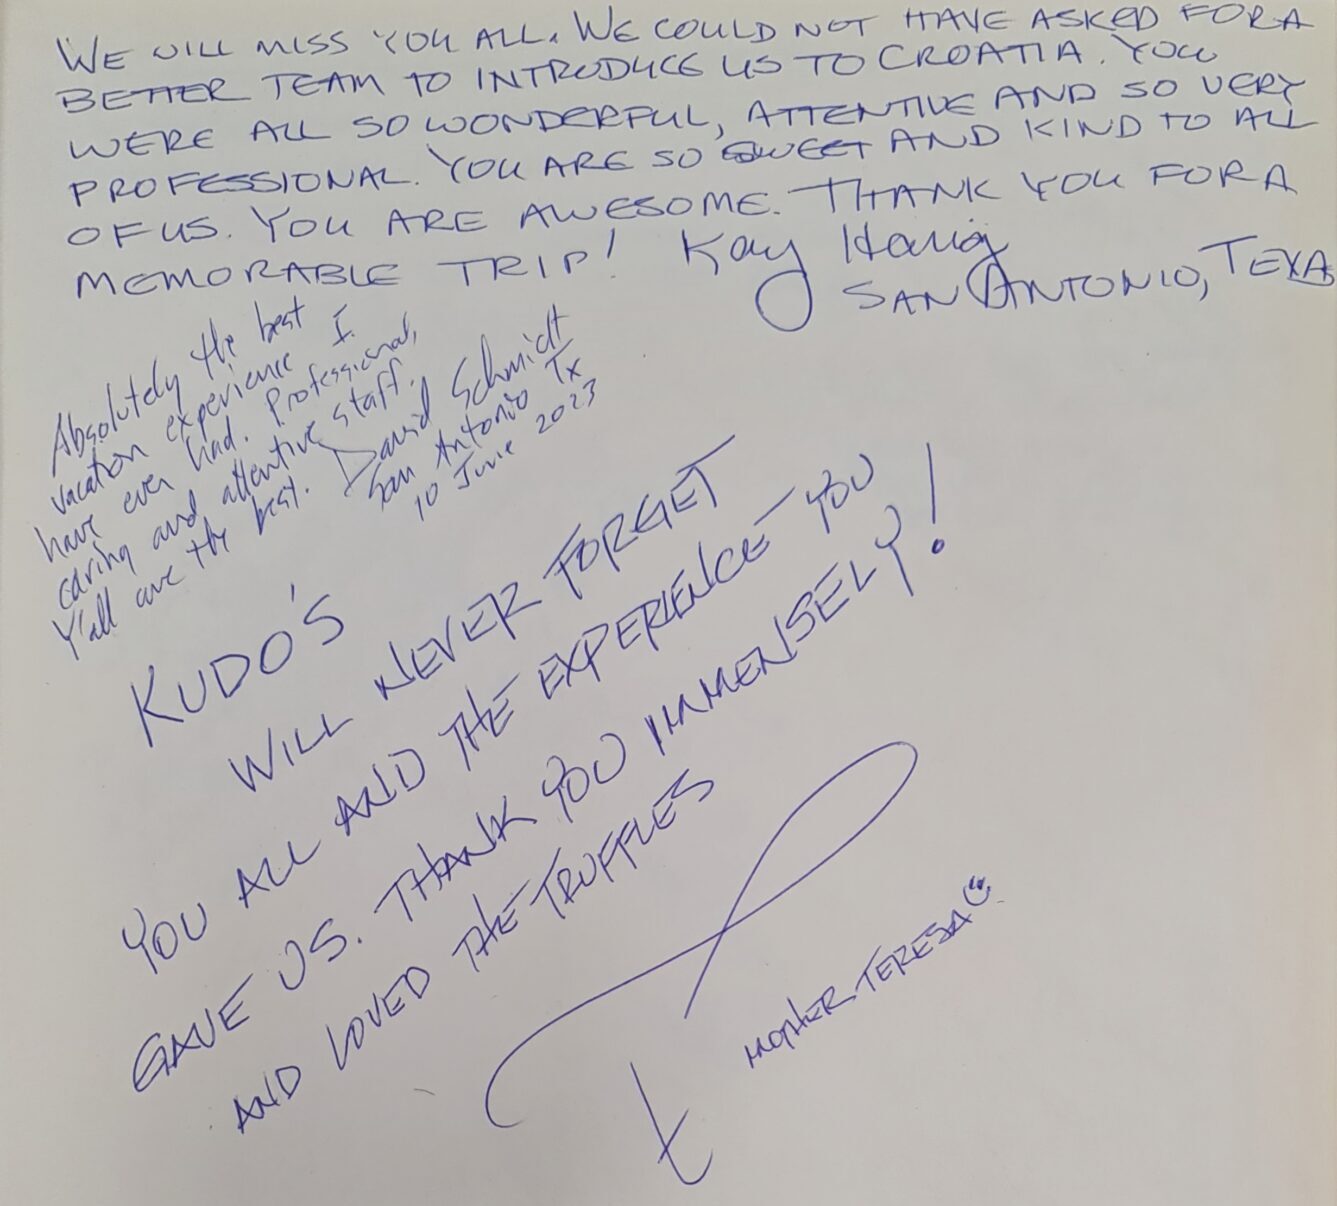 WE WILL MISS YOU ALL. WE COULD NOT HAVE ASKED FOR A
BETTER TEAM TO INTRODUCE US TO CROATIA. YOU
WERE ALL SO WONDERFUL, ATTENTIVE AND SO VERY
PROFESSIONAL. YOU ARE SO SWEET AND KIND TO ALL
OF US. YOU ARE AWESOME. THANK YOU FOR A
MEMORABLE TRIP! Kay
SAN ANTONIO, TEXAS
Absolutely the best
vacation experience I
have ever had. Professional,
caring and attentive staff.
Y'all are the best. David Schmidt
San Antonio Tx
10 June 2023
KUDO'S
WILL NEVER FORGET
YOU ALL AND THE EXPERIENCE YOU
GAVE US. THANK YOU IMMENSELY!
AND LOVED THE TRUFFLES
MOTHER TERESA